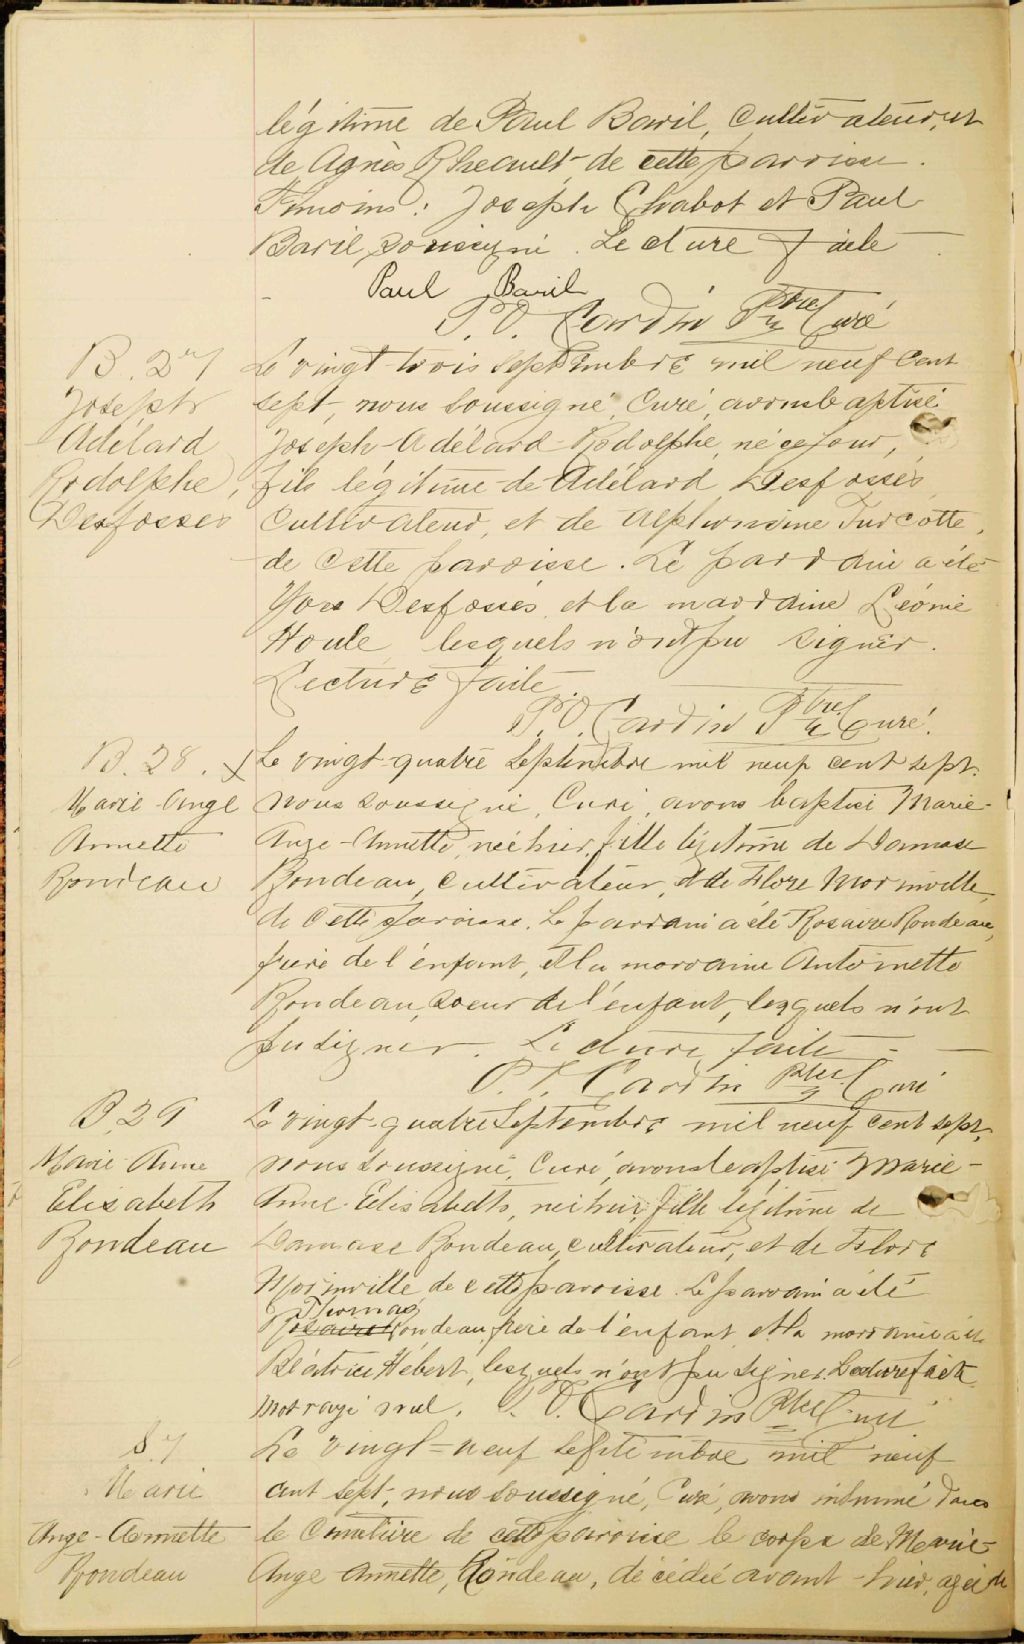 légitime de Paul Baril, cultivateur, et
de Agnès Rheault de cette paroisse.
Témoins: Joseph Chabot et Paul
Baril soussigné. Lecture faite
Paul Baril
P. O. Cardin Ptre Curé
B. 27
Joseph
Adélard
Rodolphe,
Desfossés
Le vingt-trois septembre mil neuf cent
sept, nous soussigné, Curé, avons baptisé
Joseph-Adélard-Rodolphe, né ce jour,
fils légitime de Adélard Desfossés,
cultivateur, et de Alphonsine Turcotte,
de cette paroisse. Le parrain a été
Yves Desfossés, et la marraine Léonie
Houle lesquels n'ont pu signer.
Lecture faite.
P. O. Cardin Ptre Curé.
B. 28. X
Marie-Ange
Annette
Rondeau
Le vingt-quatre septembre mil neuf cent sept,
nous soussigné, Curé, avons baptisé Marie-
Ange-Annette, née hier, fille légitime de Damase
Rondeau, cultivateur, et de Flore Morinville,
de cette paroisse. Le parrain a été Rosaire Rondeau,
frère de l'enfant, et la marraine Antoinette
Rondeau, soeur de l'enfant, lesquels n'ont
pu signer. Lecture faite
P. O. Cardin Ptre Curé
B. 29
Marie Anne
Elisabeth
Rondeau
Le vingt-quatre Septembre mil neuf cent sept,
nous soussigné, Curé, avons baptisé Marie-
Anne-Elisabeth, née hier, fille légitime de
Damase Rondeau, cultivateur, et de Flore
Morinville de cette paroisse. Le parrain a été
Thomas
Rosaire Rondeau, frère de l'enfant et la marraine a été
Béatrice Hébert, lesquels n'ont pu signer. Lecture faite
Mot rayé nul. P. O. Cardin Ptre Curé
S. 7
Marie
Ange-Annette
Rondeau
Le vingt-neuf septembre mil neuf
cent sept, nous soussigné, Curé, avons inhumé dans
le cimetière de cette paroisse le corps de Marie-
Ange Annette, Rondeau, décédée avant-hier, agée de